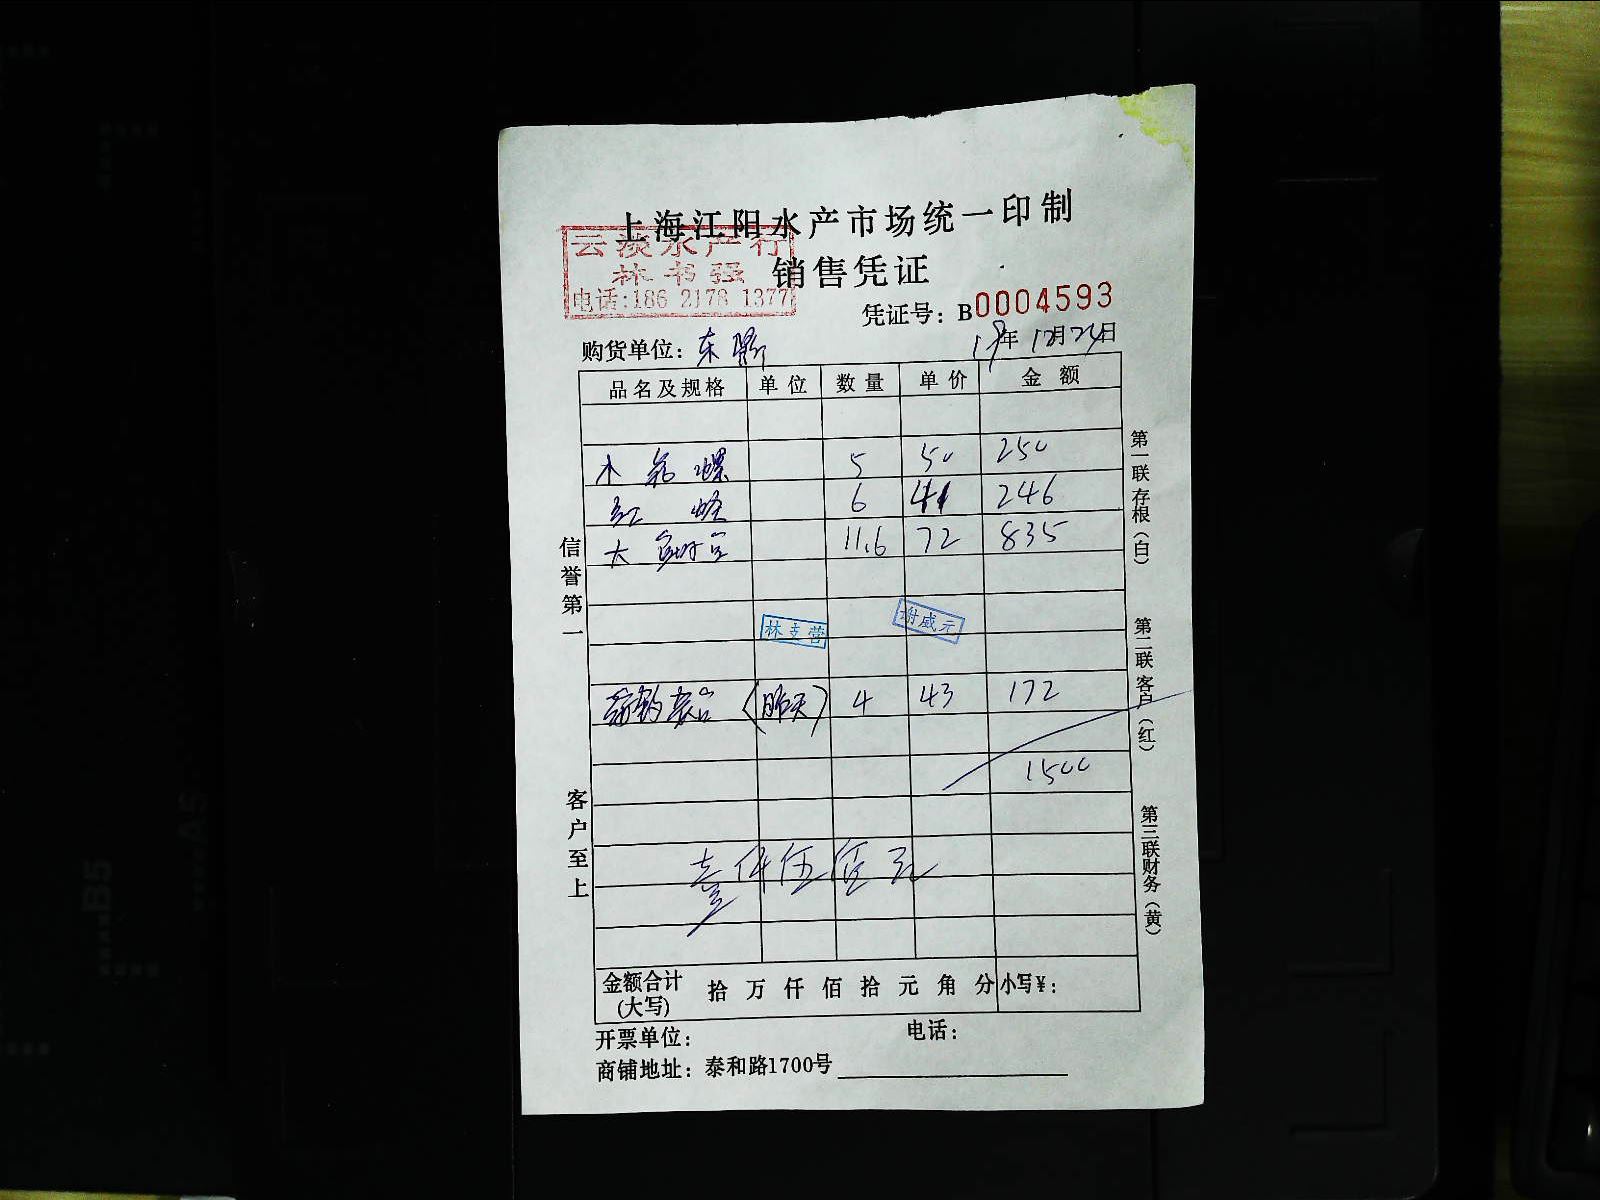 上海江阳水产市场统一印制
云淡水产行
林书强
电话:186 2178 1377
销售凭证
凭证号: B0004593
购货单位: 东
19年 12月24日
品名及规格 单位 数量 单价 金额
螺 5 50 250
红 6 41 246
大 11.6 72 835
林支营 谢威元
(昨天) 4 43 172
1500
壹仟伍佰元
金额合计(大写) 拾 万 仟 佰 拾 元 角 分 小写¥:
开票单位: 电话:
商铺地址: 泰和路1700号
信誉第一
客户至上
第一联 存根(白)
第二联 客户(红)
第三联 财务(黄)
B5
A5